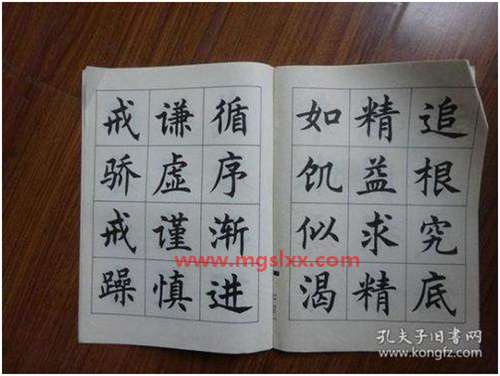 追根究底
精益求精
如饥似渴
循序渐进
谦虚谨慎
戒骄戒躁
www.mgslxx.com
孔夫子旧书网
www.kongfz.com